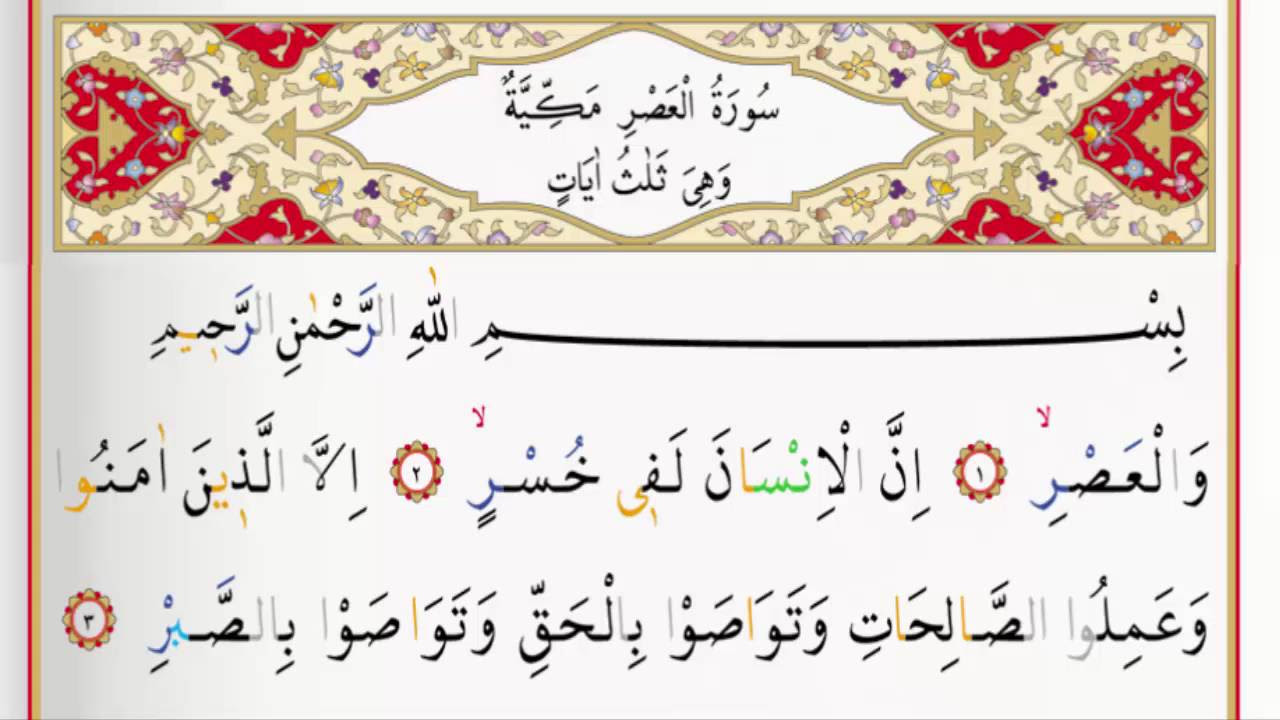 سُورَةُ الْعَصْرِ مَكِّيَّةٌ
وَهِيَ ثَلٰثُ اٰيَاتٍ
بِسْمِ اللّٰهِ الرَّحْمٰنِ الرَّح۪يمِ
وَالْعَصْرِۙ ﴿١﴾ اِنَّ الْاِنْسَانَ لَف۪ي خُسْرٍۙ ﴿٢﴾ اِلَّا الَّذ۪ينَ اٰمَنُوا
وَعَمِلُوا الصَّالِحَاتِ وَتَوَاصَوْا بِالْحَقِّ وَتَوَاصَوْا بِالصَّبْرِ ﴿٣﴾